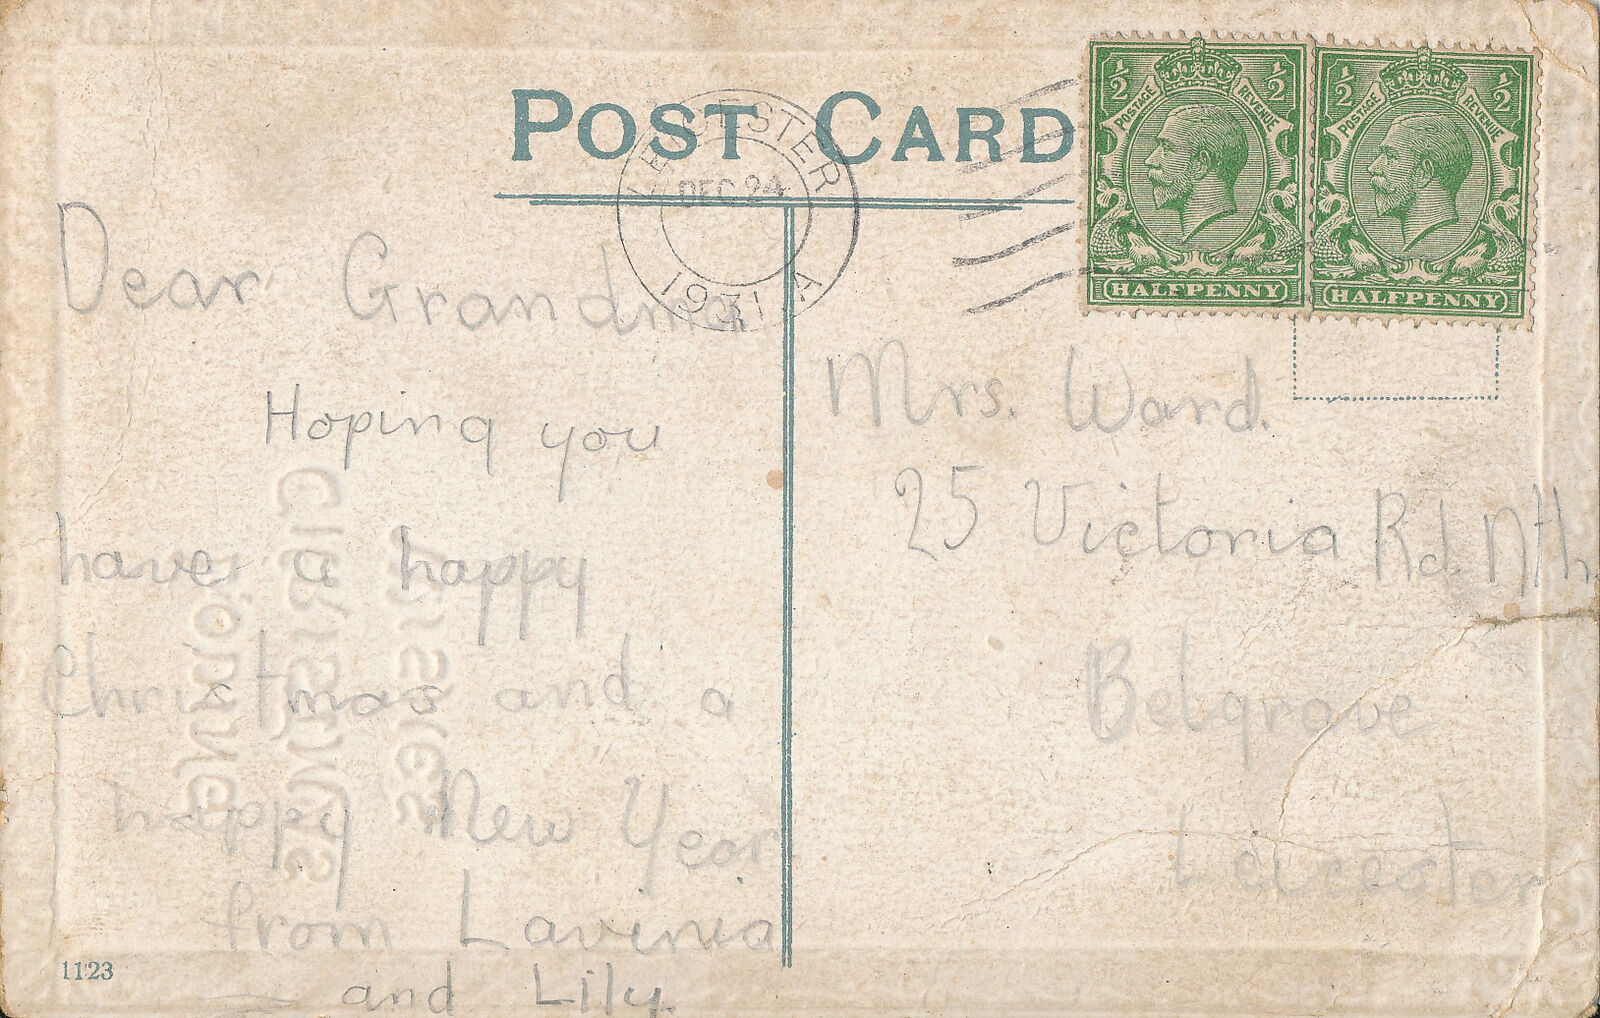 POST CARD
LEICESTER
DEC 24
1931 A
1/2 POSTAGE REVENUE 1/2
HALFPENNY
1/2 POSTAGE REVENUE 1/2
HALFPENNY
Dear Grandma
Hoping you
have a happy
Christmas and a
happy New Year
from Lavinia
and Lily.
Mrs. Ward.
25 Victoria Rd Nth,
Belgrave
Leicester
1123